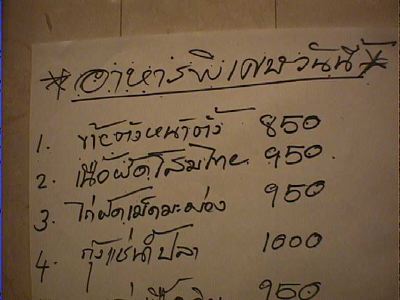 * อาหารพิเศษวันนี้ *
1. ข้าวตังหน้าตั้ง 850
2. เนื้อผัดโสมไทย 950
3. ไก่ผัดเม็ดมะม่วง 950
4. กุ้งแช่น้ำปลา 1000
950